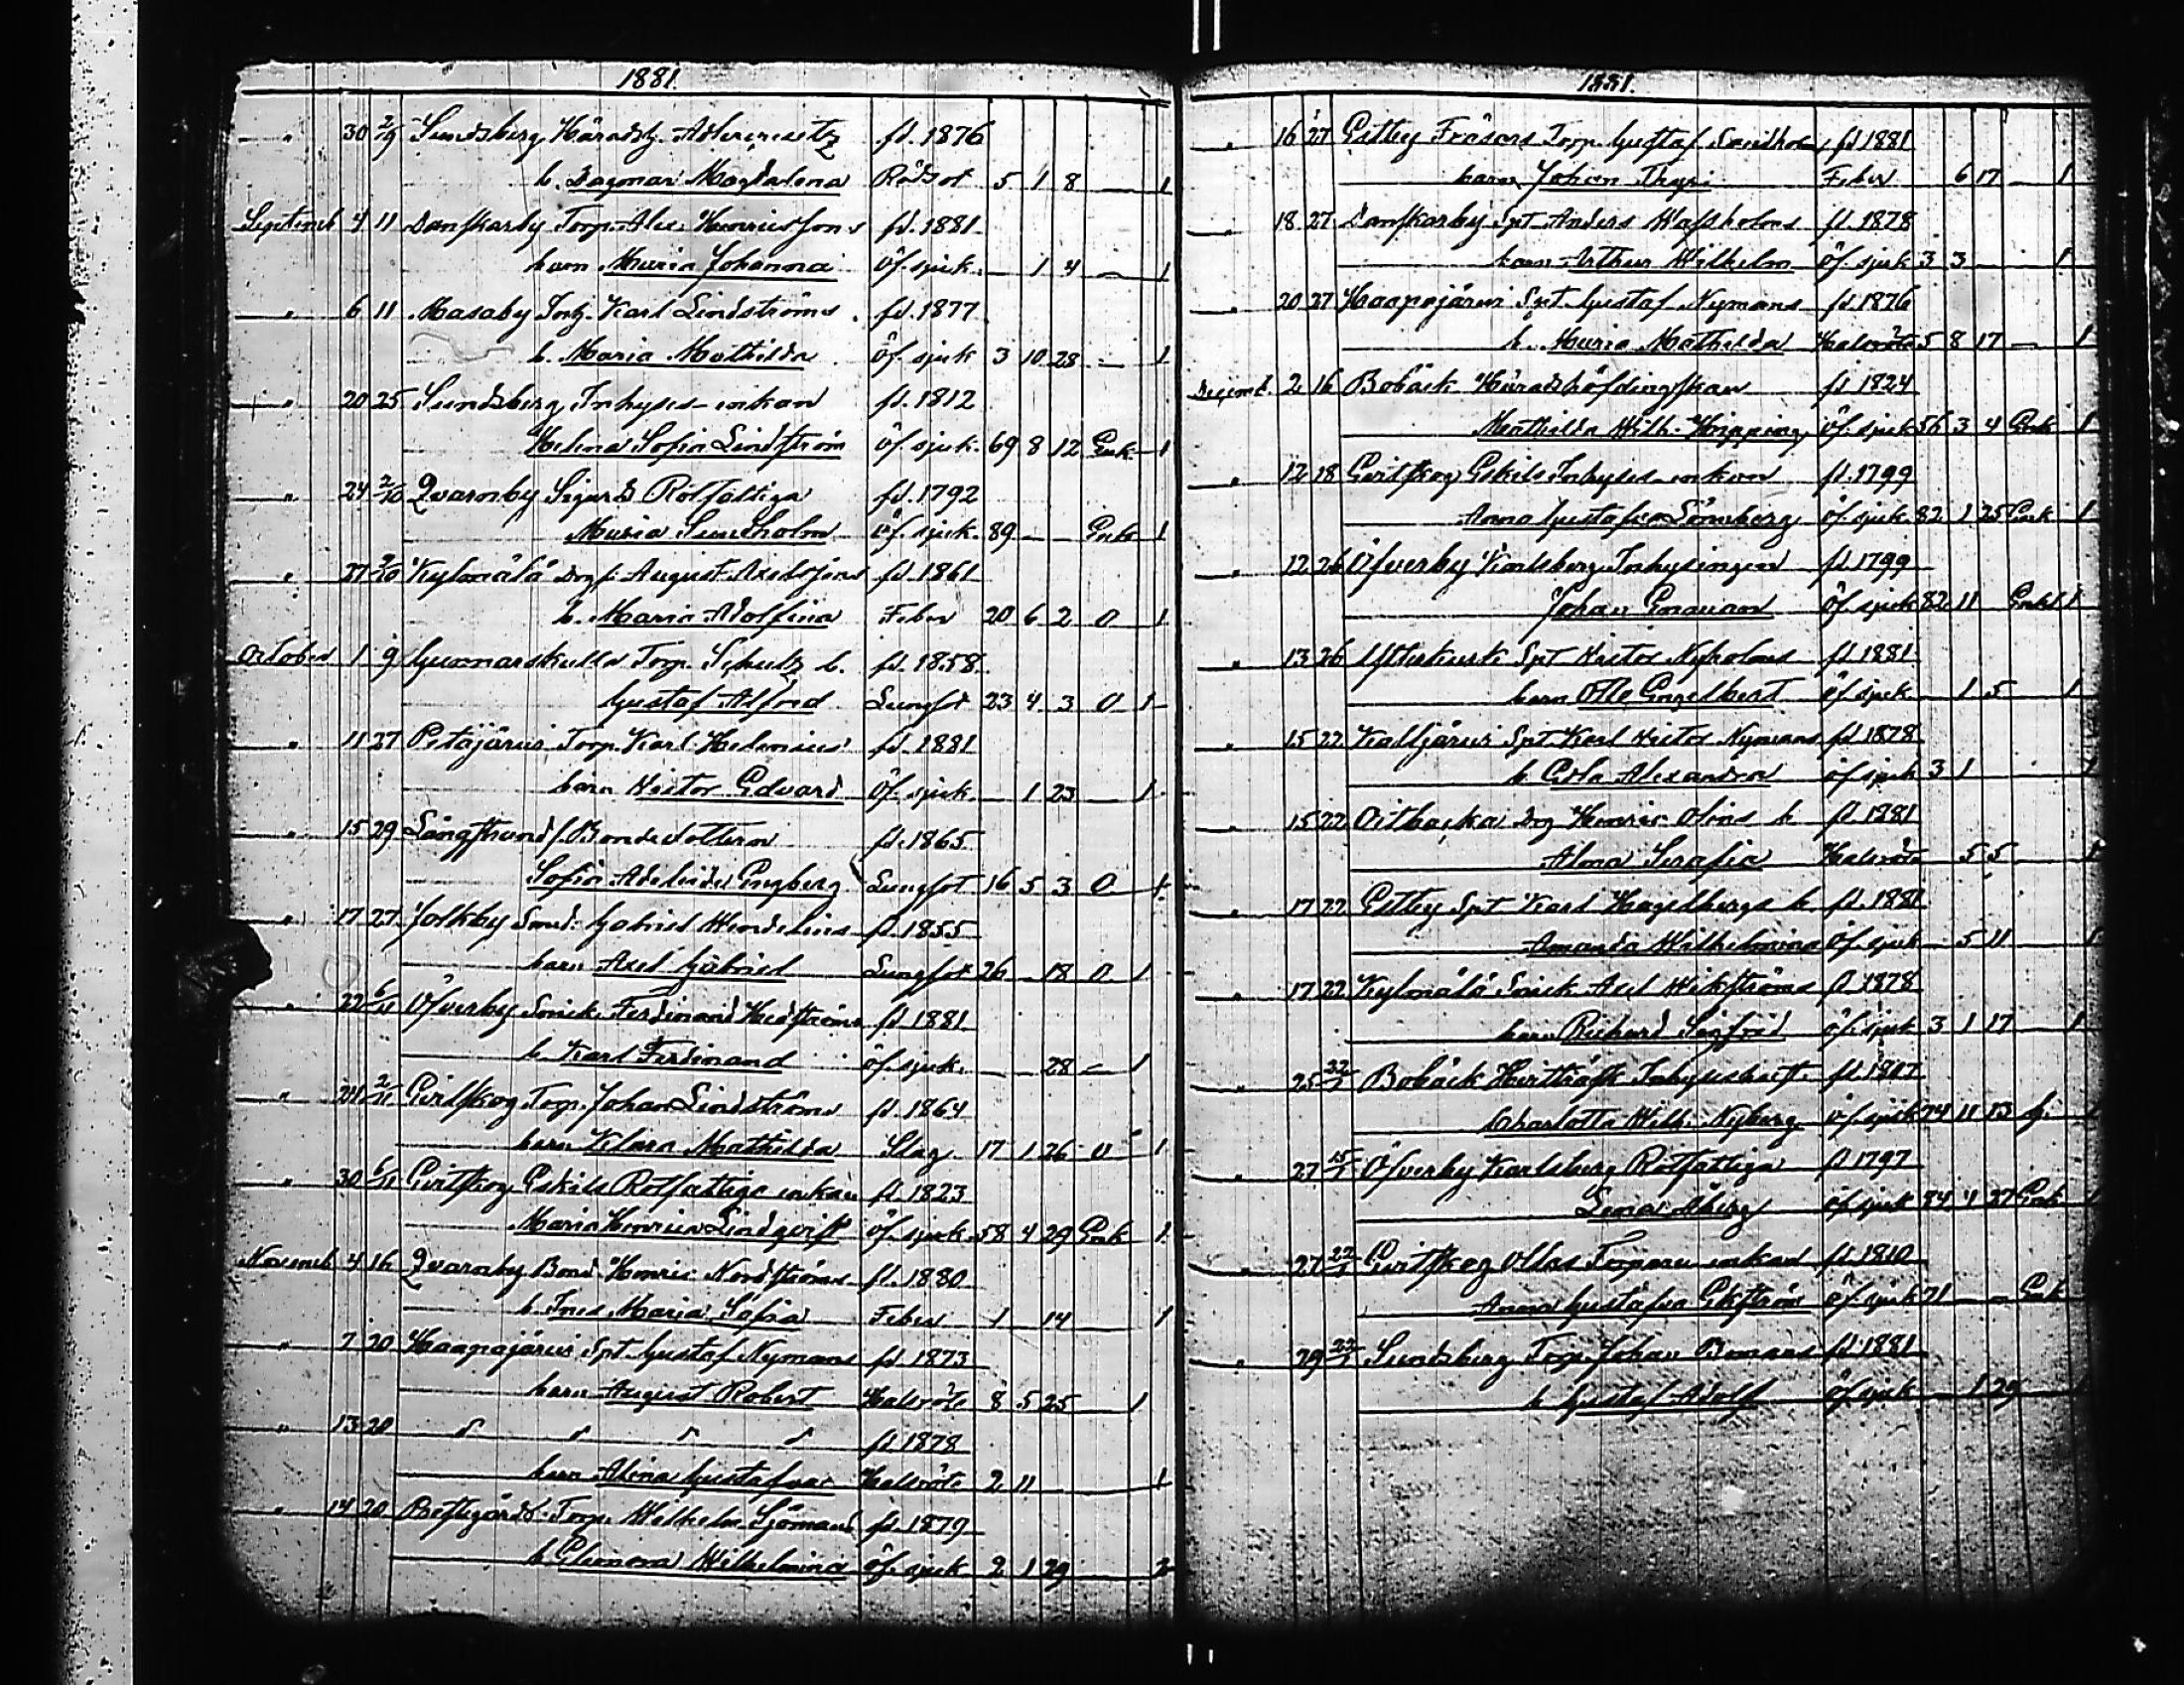 1881.
" 30 2/9 Sundsberg Häradsh. Adlercreutz fd. 1876
b. Dagmar Magdalena Rödsot 5 1 8 — 1
Septemb 4 11 Danskarby Torp. Alex. Henrikssons fd. 1881
barn Maria Johanna Öf. sjuk. — 1 4 — 1
" 6 11 Masaby Karl Lindströms fd. 1877
b. Maria Mathilda Öf. sjuk 3 10 28 — 1
" 20 25 Sundsberg Inhyses-enkan fd. 1812
Helena Sofia Lindström Öf. sjuk. 69 8 12 Enk. 1
" 24 2/10 Qvarnby Sigurds Rotfattiga fd. 1792
Maria Sundholm Öf. sjuk. 89 — — Enk 1
" 27 9/10 Kylmälä August Axelssons fd. 1861
b. Maria Adolfina Feber 20 6 2 O 1
October 1 9 Gunnarskulla Torp. Schultz b. fd. 1858
Gustaf Alfred Lungsot 23 4 3 O 1
" 11 27 Petäjärvi Torp. Karl Helenius fd. 1881
barn Victor Edvard Öf. sjuk. — 1 23 — 1
" 15 29 Långstrand f. Bondedottern fd. 1865
Sofia Adelaide Engberg Lungsot 16 5 3 O 1
" 17 27 Jolkby Smed. Gabriel Wendelius fd. 1855
barn Axel Gabriel Lungsot 26 — 18 O 1
" 22 6/11 Öfverby Snick. Ferdinand Hedströms fd 1881
b Karl Ferdinand öf. sjuk. — 28 — 1
" 24 2/11 Evitskog Torp. Johan Lindströms fd. 1864
barn Klara Mathilda Slag 17 1 26 O 1
" 30 6/11 Evitskog Eskils Rotfattige enkan fd. 1823
Maria Henrica Lindqvist Öf. sjuk. 58 4 29 Enk 1
Novemb 4 16 Qvarnby Bond. Henric Nordströms fd. 1880
b. Ines Maria Sofia Feber 1 — 14 — 1
" 7 20 Haapajärvi Spt. Gustaf Nymans fd 1873
barn August Robert Halsröta 8 5 25 — 1
" 13 20 " " " " fd. 1878
barn Alina Gustafva Halsröta 2 11 — 1
" 14 20 Torp. Wilhelm Sjömans fd. 1879
b Eleonora Wilhelmina Öf. sjuk 2 1 29 — 2
1881.
" 16 27 Estby Fräsars Torp. Gustaf Sandholms fd 1881
barn Johan Thyri Feber 6 17 — 1
" 18 27 Danskarby Spt. Anders Wassholms fd. 1878
barn Arthur Wilhelm Öf. sjuk 3 3 — 1
" 20 27 Haapajärvi Spt. Gustaf Nymans fd. 1876
b. Maria Mathilda Halsröta 5 8 17 — 1
Decemb. 2 16 Bobäck Häradshöfdingskan fd 1824
Mathilda Wilh. Hipping öf. sjuk 56 3 4 Enk 1
" 12 18 Evitskog Eskils Inhyses-enkan fd. 1799
Anna Gustafva Lönnberg öf. sjuk 82 1 25 Enk 1
" 12 26 Öfverby Karlsberg Inhysingen fd. 1799
Johan Enqvist Öf. sjuk 82 11 Enkl 1
" 13 26 Ytterkurk Spt Victor Nyholms fd 1881
barn Otto Engelbert öf sjuk — 1 5 1
" 15 22 Kaljärvi Spt. Karl Victor Nymans fd 1878
b. Edla Alexandra öf. sjuk 3 1 1
" 15 22 Oitbacka Drg Henric Olins b fd 1881
Alma Serafia Halsröta 5 5 1
" 17 22 Estby Spt Karl Hagelbergs b. fd. 1881
Amanda Wilhelmina Öf. sjuk — 5 11 1
" 17 22 Kylmälä Snick. Axel Wikströms fd 1878
barn Richard Sigfrid öf. sjuk 3 1 17 1
" 25 22/1 Bobäck Inhyseshust. fd. 1807
Charlotta Wilh. Nyberg öf. sjuk 74 11 13 g. 1
" 27 15/1 Öfverby Karlsberg Rotfattiga fd 1797
Lena Åberg öf sjuk 84 4 27 Enk 1
" 27 22/1 Evitskog Ollas Torpare enkan fd. 1810
Anna Gustafva Ekström Öf. sjuk 71 — — Enk
" 29 22/1 Sundsberg Torp. Johan Bomans fd 1881
b Gustaf Adolf öf sjuk — 1 29 1